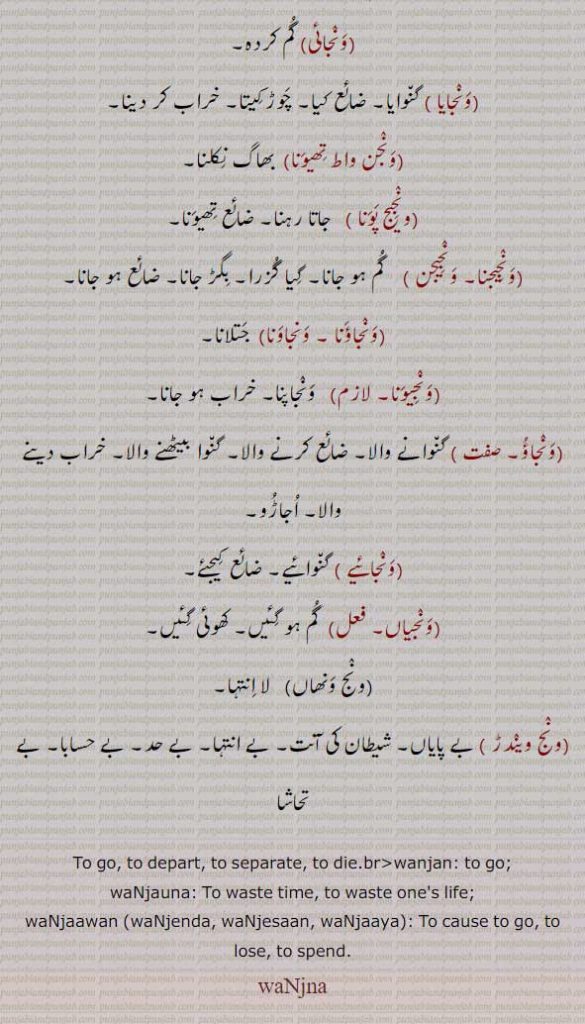 (وَنْجائی) گُم کردہ۔
(وَنْجایا ) گنّوایا۔ ضائع کیا۔ چَوڑ کِیتا۔ خراب کر دینا۔
(وَنْجن واط تِھیوَنا) بھاگ نِکلنا۔
(ونْجیج پَوَنا ) جاتا رہنا۔ ضائع تِھیوَنا۔
(وَنْجیجنا۔ وَنْجیجن ) گُم ہو جانا۔ گیا گُزرا۔ بِگڑ جانا۔ ضائع ہو جانا۔
(وَنْجاؤَنا ۔ وَنجاوَنا) جَتلانا۔
(وَنْجِیوَنا۔ لازم) وَنْجاپنا۔ خراب ہو جانا۔
(وَنْجاؤُ۔ صفت ) گنّوانے والا۔ ضائع کرنے والا۔ گنّوا بیٹھنے والا۔ خراب دینے
والا۔ اُجاڑُو۔
(وَنْجائیے ) گنّوائیے۔ ضائع کِیجئے۔
(وَنْجیاں۔ فعل) گُم ہو گِئیں۔ کھوئی گِئیں۔
(ونْج وَنھاں) لا اِنتہا۔
(ونْج ویٖنْدڑ ) بے پایاں۔ شیطان کی آنت۔ بے انتہا۔ بے حد۔ بے حسابا۔ بے
تحاشا
To go, to depart, to separate, to die.br>wanjan: to go;
waNjauna: To waste time, to waste one's life;
waNjaawan (waNjenda, waNjesaan, waNjaaya): To cause to go, to
lose, to spend.
waNjna